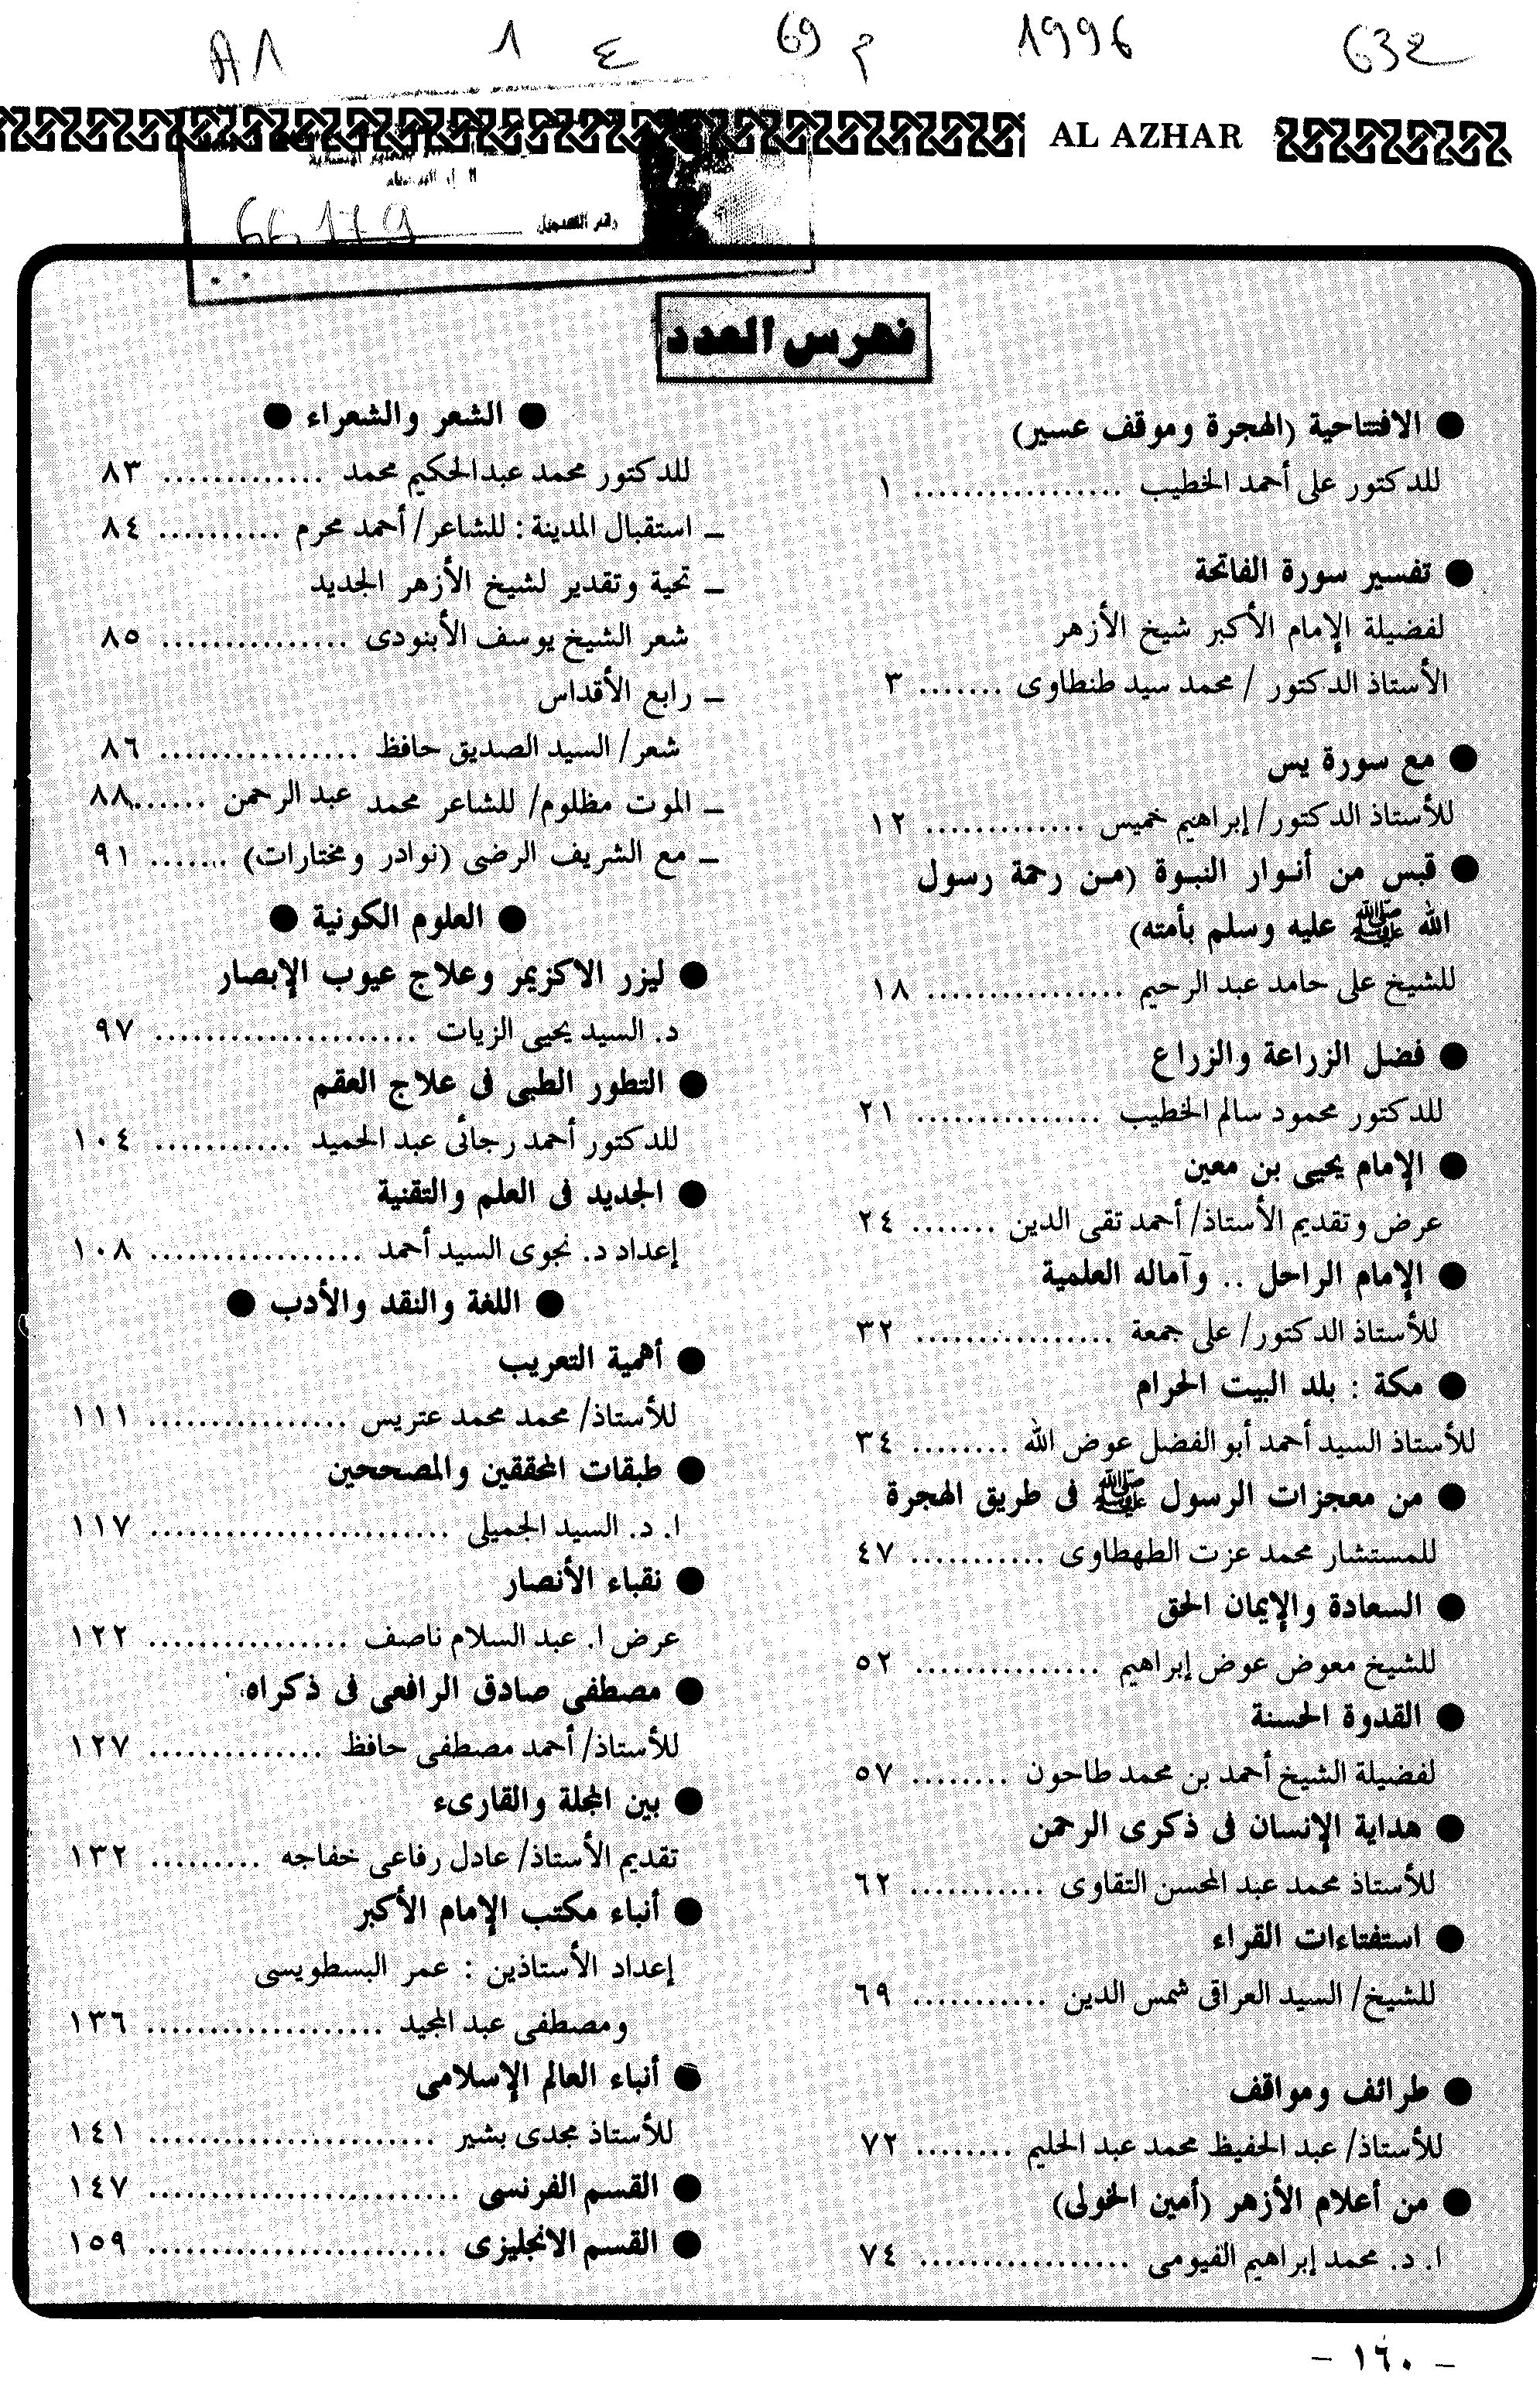 632 1996 م 69 ع 1 A1
AL AZHAR
رقم التسجيل 66179
فهرس العدد
● الافتتاحية (الهجرة وموقف عسير)
للدكتور على أحمد الخطيب ................. ١
● تفسير سورة الفاتحة
لفضيلة الإمام الأكبر شيخ الأزهر
الأستاذ الدكتور / محمد سيد طنطاوى ....... ٣
● مع سورة يس
للأستاذ الدكتور/ إبراهيم خميس ............. ١٢
● قبس من أنوار النبوة (من رحمة رسول
الله ﷺ عليه وسلم بأمته)
للشيخ على حامد عبد الرحيم ................ ١٨
● فضل الزراعة والزراع
للدكتور محمود سالم الخطيب ............... ٢١
● الإمام يحيى بن معين
عرض وتقديم الأستاذ/ أحمد تقى الدين ....... ٢٤
● الإمام الراحل .. وآماله العلمية
للأستاذ الدكتور/ على جمعة ................ ٣٢
● مكة : بلد البيت الحرام
للأستاذ السيد أحمد أبو الفضل عوض الله ........ ٣٤
● من معجزات الرسول ﷺ فى طريق الهجرة
للمستشار محمد عزت الطهطاوى ........... ٤٧
● السعادة والإيمان الحق
للشيخ معوض عوض إبراهيم ............... ٥٢
● القدوة الحسنة
لفضيلة الشيخ أحمد بن محمد طاحون ........ ٥٧
● هداية الإنسان فى ذكرى الرحمن
للأستاذ محمد عبد المحسن التقاوى ........... ٦٢
● استفتاءات القراء
للشيخ/ السيد العراقى شمس الدين ........... ٦٩
● طرائف ومواقف
للأستاذ/ عبد الحفيظ محمد عبد الحليم ........ ٧٢
● من أعلام الأزهر (أمين الخولى)
ا. د. محمد إبراهيم الفيومى ................. ٧٤
● الشعر والشعراء ●
للدكتور محمد عبدالحكيم محمد ............. ٨٣
ـ استقبال المدينة : للشاعر/ أحمد محرم .......... ٨٤
ـ تحية وتقدير لشيخ الأزهر الجديد
شعر الشيخ يوسف الأبنودى ............... ٨٥
ـ رابع الأقداس
شعر/ السيد الصديق حافظ ................ ٨٦
ـ الموت مظلوم/ للشاعر محمد عبد الرحمن ....... ٨٨
ـ مع الشريف الرضى (نوادر ومختارات) ....... ٩١
● العلوم الكونية ●
● ليزر الاكزيمر وعلاج عيوب الإبصار
د. السيد يحيى الزيات ..................... ٩٧
● التطور الطبى فى علاج العقم
للدكتور أحمد رجائى عبد الحميد ........... ١٠٤
● الجديد فى العلم والتقنية
إعداد د. نجوى السيد أحمد ................. ١٠٨
● اللغة والنقد والأدب ●
● أهمية التعريب
للأستاذ/ محمد محمد عتريس ................ ١١١
● طبقات المحققين والمصححين
ا. د. السيد الجميلى ........................ ١١٧
● نقباء الأنصار
عرض ا. عبد السلام ناصف ................ ١٢٢
● مصطفى صادق الرافعى فى ذكراه
للأستاذ/ أحمد مصطفى حافظ .............. ١٢٧
● بين المجلة والقارىء
تقديم الأستاذ/ عادل رفاعى خفاجه ......... ١٣٢
● أنباء مكتب الإمام الأكبر
إعداد الأستاذين : عمر البسطويسى
ومصطفى عبد المجيد ................... ١٣٦
● أنباء العالم الإسلامى
للأستاذ مجدى بشير ....................... ١٤١
● القسم الفرنسى ......................... ١٤٧
● القسم الانجليزى ........................ ١٥٩
- ١٦٠ -